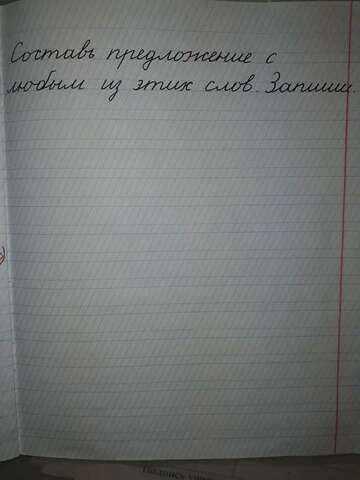 Составь предложение с
любым из этих слов. Запиши.